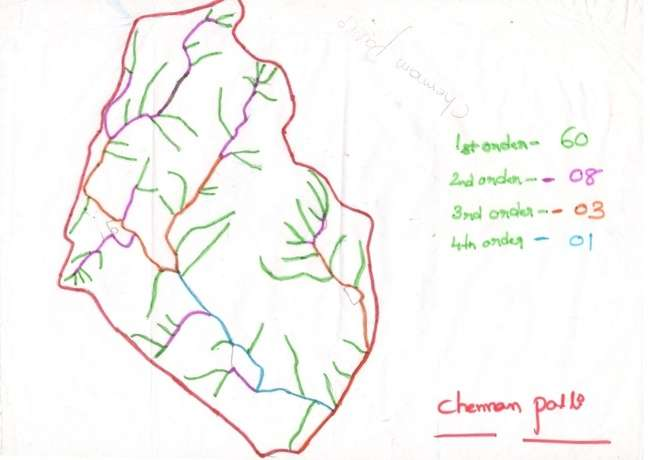 1st order - 60
2nd order - - 08
3rd order - - 03
4th order - 01
Chennan palli